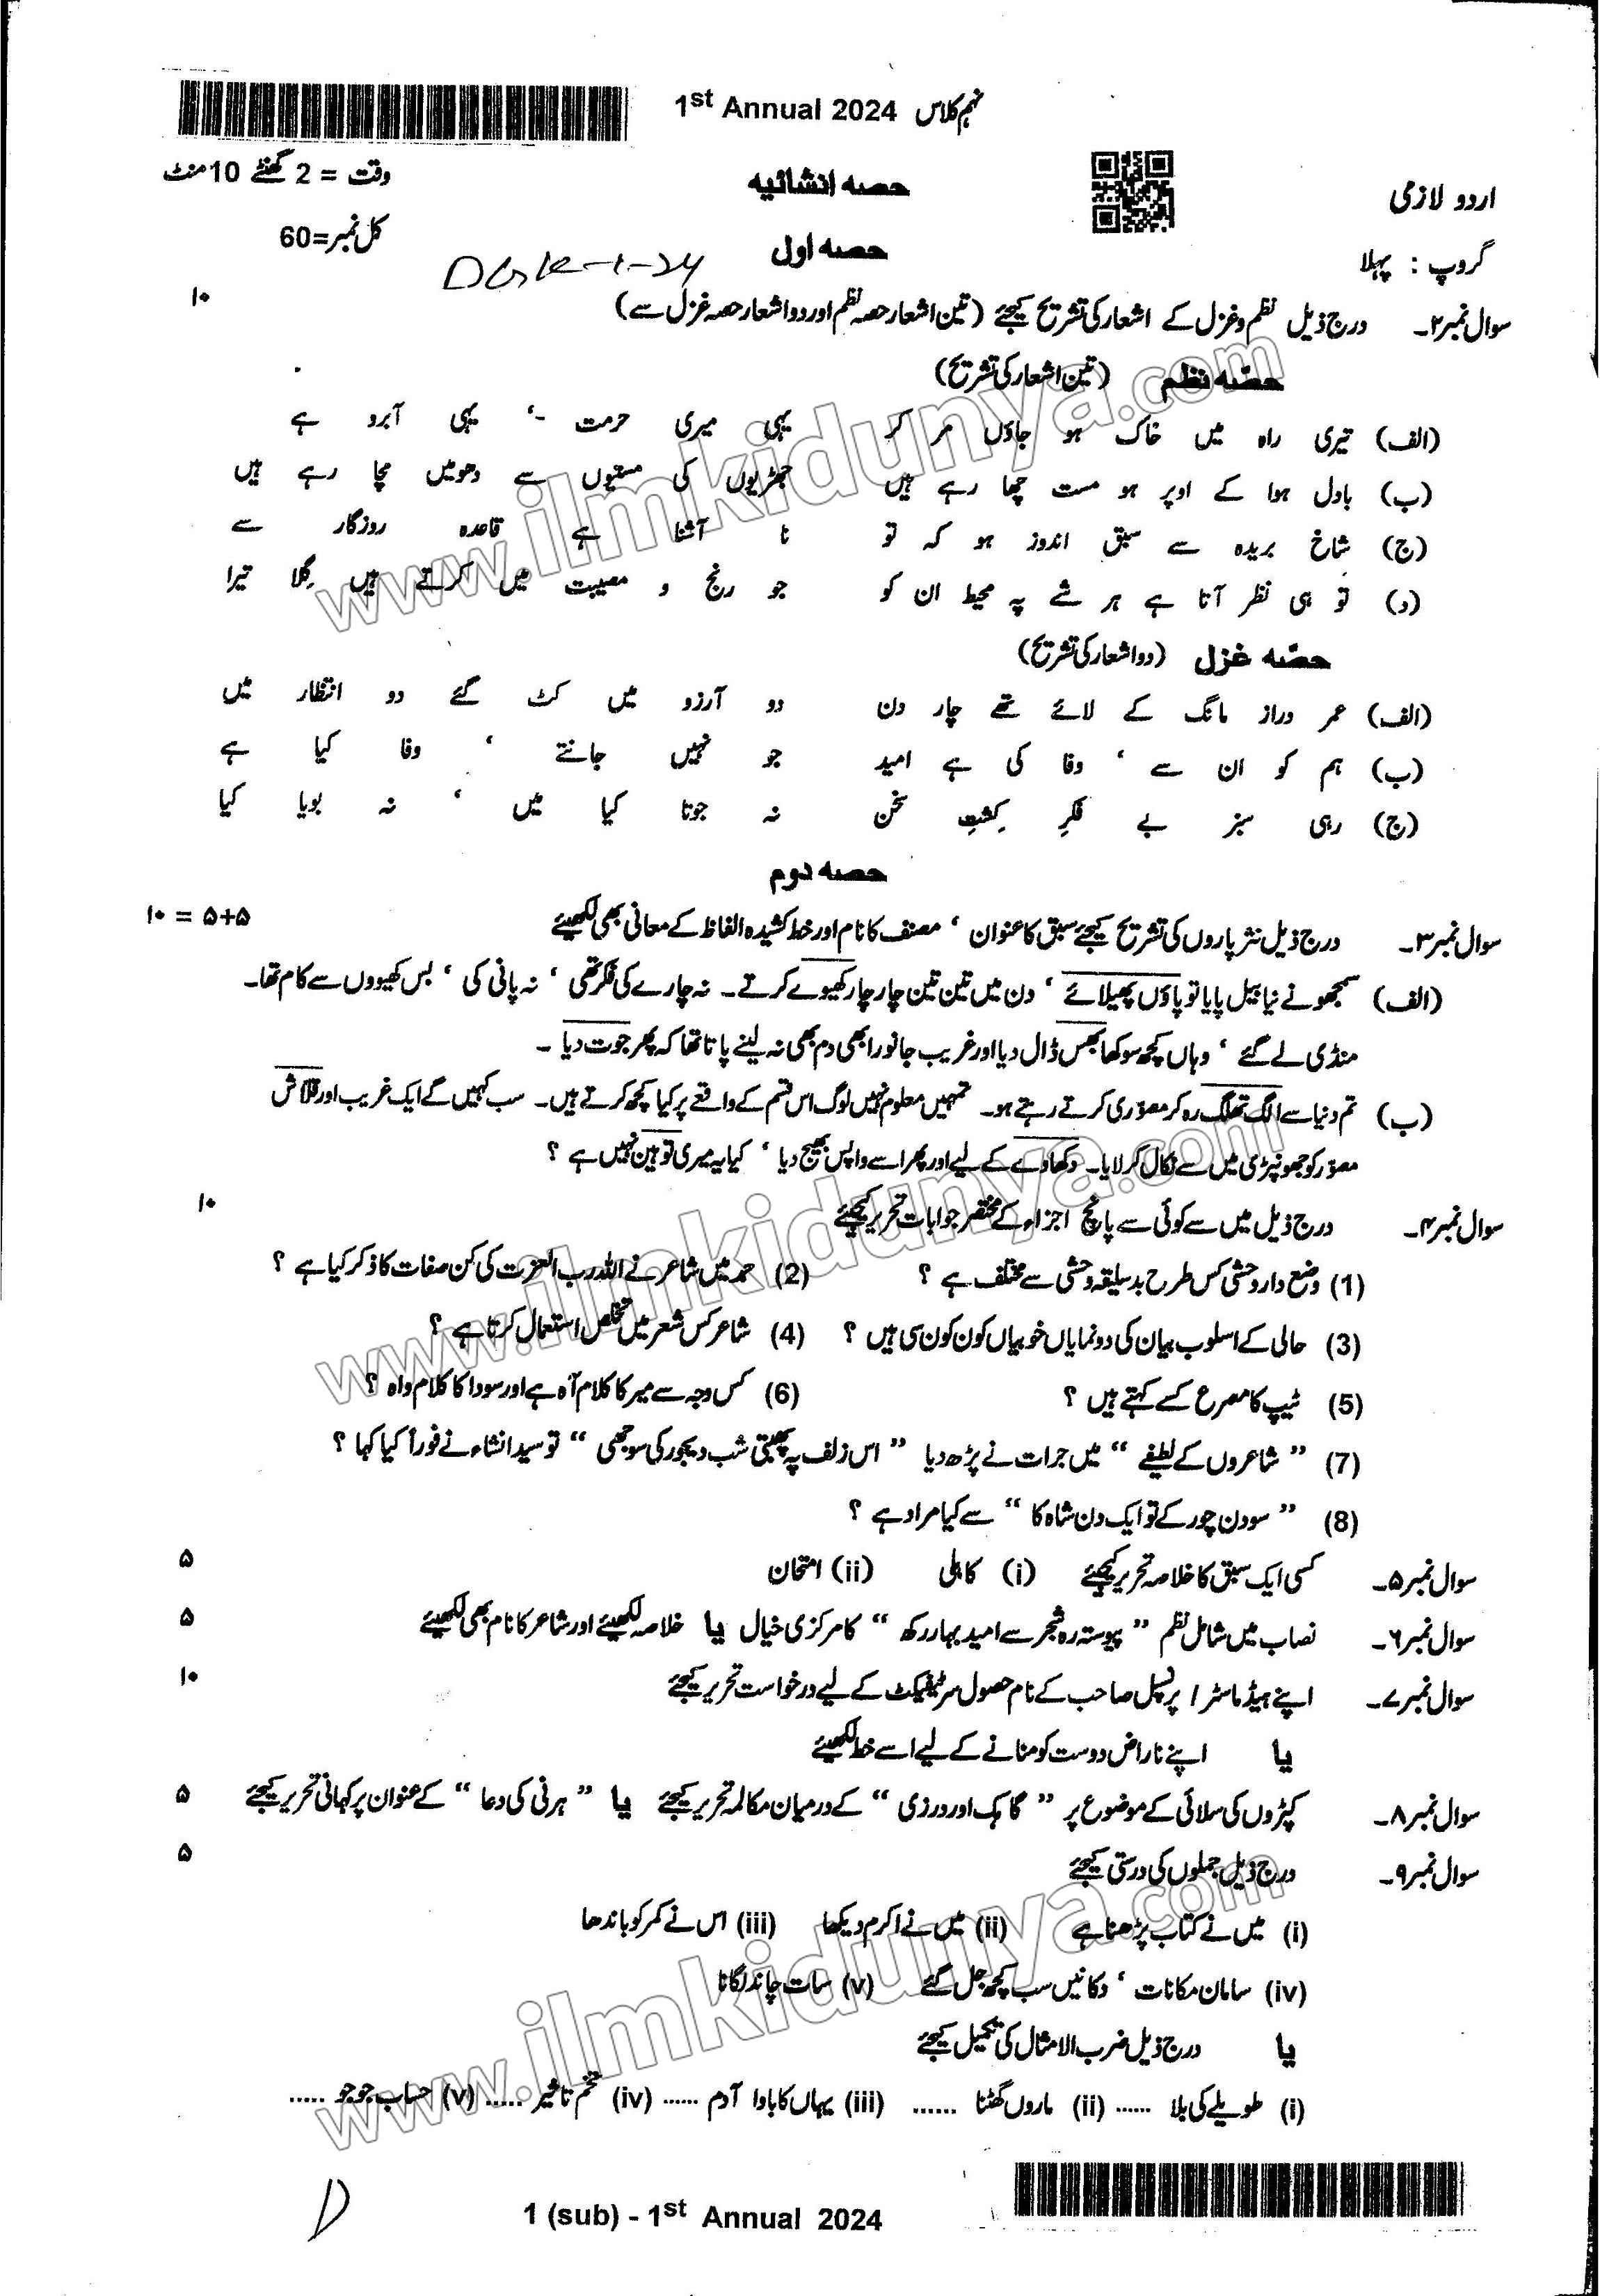 نہم کلاس 1st Annual 2024
وقت = 2 گھنٹے 10 منٹ
حصہ انشائیہ
اردو لازمی
کل نمبر=60
حصہ اول
گروپ : پہلا
سوال نمبر۲۔ درج ذیل نظم و غزل کے اشعار کی تشریح کیجئے (تین اشعار حصہ نظم اور دو اشعار حصہ غزل سے) ۱۰
حصّہ نظم (تین اشعار کی تشریح)
(الف) تیری راہ میں خاک ہو جاؤں مر کر یہی میری حرمت -، یہی آبرو ہے
(ب) بادل ہوا کے اوپر ہو مست چھا رہے ہیں جھڑیوں کی مستیوں سے دھومیں مچا رہے ہیں
(ج) شاخ بریدہ سے سبق اندوز ہو کہ تو نا آشنا ہے قاعدہ روزگار سے
(د) تو ہی نظر آتا ہے ہر شے پہ محیط ان کو جو رنج و مصیبت میں کرتے ہیں گِلا تیرا
حصّہ غزل (دو اشعار کی تشریح)
(الف) عمر دراز مانگ کے لائے تھے چار دن دو آرزو میں کٹ گئے دو انتظار میں
(ب) ہم کو ان سے ، وفا کی ہے امید جو نہیں جانتے ، وفا کیا ہے
(ج) رہی سبز بے فکرِ کِشتِ سخن نہ جوتا کیا میں ، نہ بویا کیا
حصہ دوم
سوال نمبر۳۔ درج ذیل نثر پاروں کی تشریح کیجئے سبق کا عنوان ، مصنف کا نام اور خط کشیدہ الفاظ کے معانی بھی لکھیئے ۵+۵ = ۱۰
(الف) سمجھو نے نیا بیل پایا تو پاؤں پھیلائے ، دن میں تین تین چار چار کھیوے کرتے۔ نہ چارے کی فکر تھی ، نہ پانی کی ، بس کھیووں سے کام تھا۔
منڈی لے گئے ، وہاں کچھ سوکھا بھس ڈال دیا اور غریب جانور ابھی دم بھی نہ لینے پاتا تھا کہ پھر جوت دیا ۔
(ب) تم دنیا سے الگ تھلگ رہ کر مصوّری کرتے رہتے ہو۔ تمہیں معلوم نہیں لوگ اس قسم کے واقعے پر کیا کچھ کرتے ہیں۔ سب کہیں گے ایک غریب اور قلاش
مصوّر کو جھونپڑی میں سے نکال کر لایا۔ دکھاوے کے لیے اور پھر اسے واپس بھیج دیا ، کیا یہ میری توہین نہیں ہے ؟
سوال نمبر۴۔ درج ذیل میں سے کوئی سے پانچ اجزاء کے مختصر جوابات تحریر کیجئے ۱۰
(1) وضع دار وحشی کس طرح بد سلیقہ وحشی سے مختلف ہے ؟ (2) حمد میں شاعر نے اللہ رب العزت کی کن صفات کا ذکر کیا ہے ؟
(3) حالی کے اسلوب بیان کی دو نمایاں خوبیاں کون کون سی ہیں ؟ (4) شاعر کس شعر میں تخلص استعمال کرتا ہے ؟
(5) ٹیپ کا مصرع کسے کہتے ہیں ؟ (6) کس وجہ سے میر کا کلام آہ ہے اور سودا کا کلام واہ ؟
(7) " شاعروں کے لطیفے " میں جرات نے پڑھ دیا " اس زلف پہ پھبتی شب دیجور کی سوجھی " تو سید انشاء نے فوراً کیا کہا ؟
(8) " سو دن چور کے تو ایک دن شاہ کا " سے کیا مراد ہے ؟
سوال نمبر۵۔ کسی ایک سبق کا خلاصہ تحریر کیجئے (i) کاہلی (ii) امتحان ۵
سوال نمبر۶۔ نصاب میں شامل نظم " پیوستہ رہ شجر سے امید بہار رکھ " کا مرکزی خیال یا خلاصہ لکھیئے اور شاعر کا نام بھی لکھیئے ۵
سوال نمبر۷۔ اپنے ہیڈ ماسٹر / پرنسپل صاحب کے نام حصول سرٹیفیکیٹ کے لیے درخواست تحریر کیجئے ۱۰
یا اپنے ناراض دوست کو منانے کے لیے اسے خط لکھیئے
سوال نمبر۸۔ کپڑوں کی سلائی کے موضوع پر " گاہک اور درزی " کے درمیان مکالمہ تحریر کیجئے یا " ہرنی کی دعا " کے عنوان پر کہانی تحریر کیجئے ۵
سوال نمبر۹۔ درج ذیل جملوں کی درستی کیجئے ۵
(i) میں نے کتاب پڑھنا ہے (ii) میں نے اکرم دیکھا (iii) اس نے کمر کو باندھا
(iv) سامان مکانات ، دکانیں سب کچھ جل گئے (v) سات چاند لگانا
یا درج ذیل ضرب الامثال کی تکمیل کیجئے
(i) طویلے کی بلا ...... (ii) ماروں گھٹنا ...... (iii) یہاں کا باوا آدم ...... (iv) تخم تاثیر ...... (v) حساب جو جو .....
1 (sub) - 1st Annual 2024
www.ilmkidunya.com
www.ilmkidunya.com
www.ilmkidunya.com